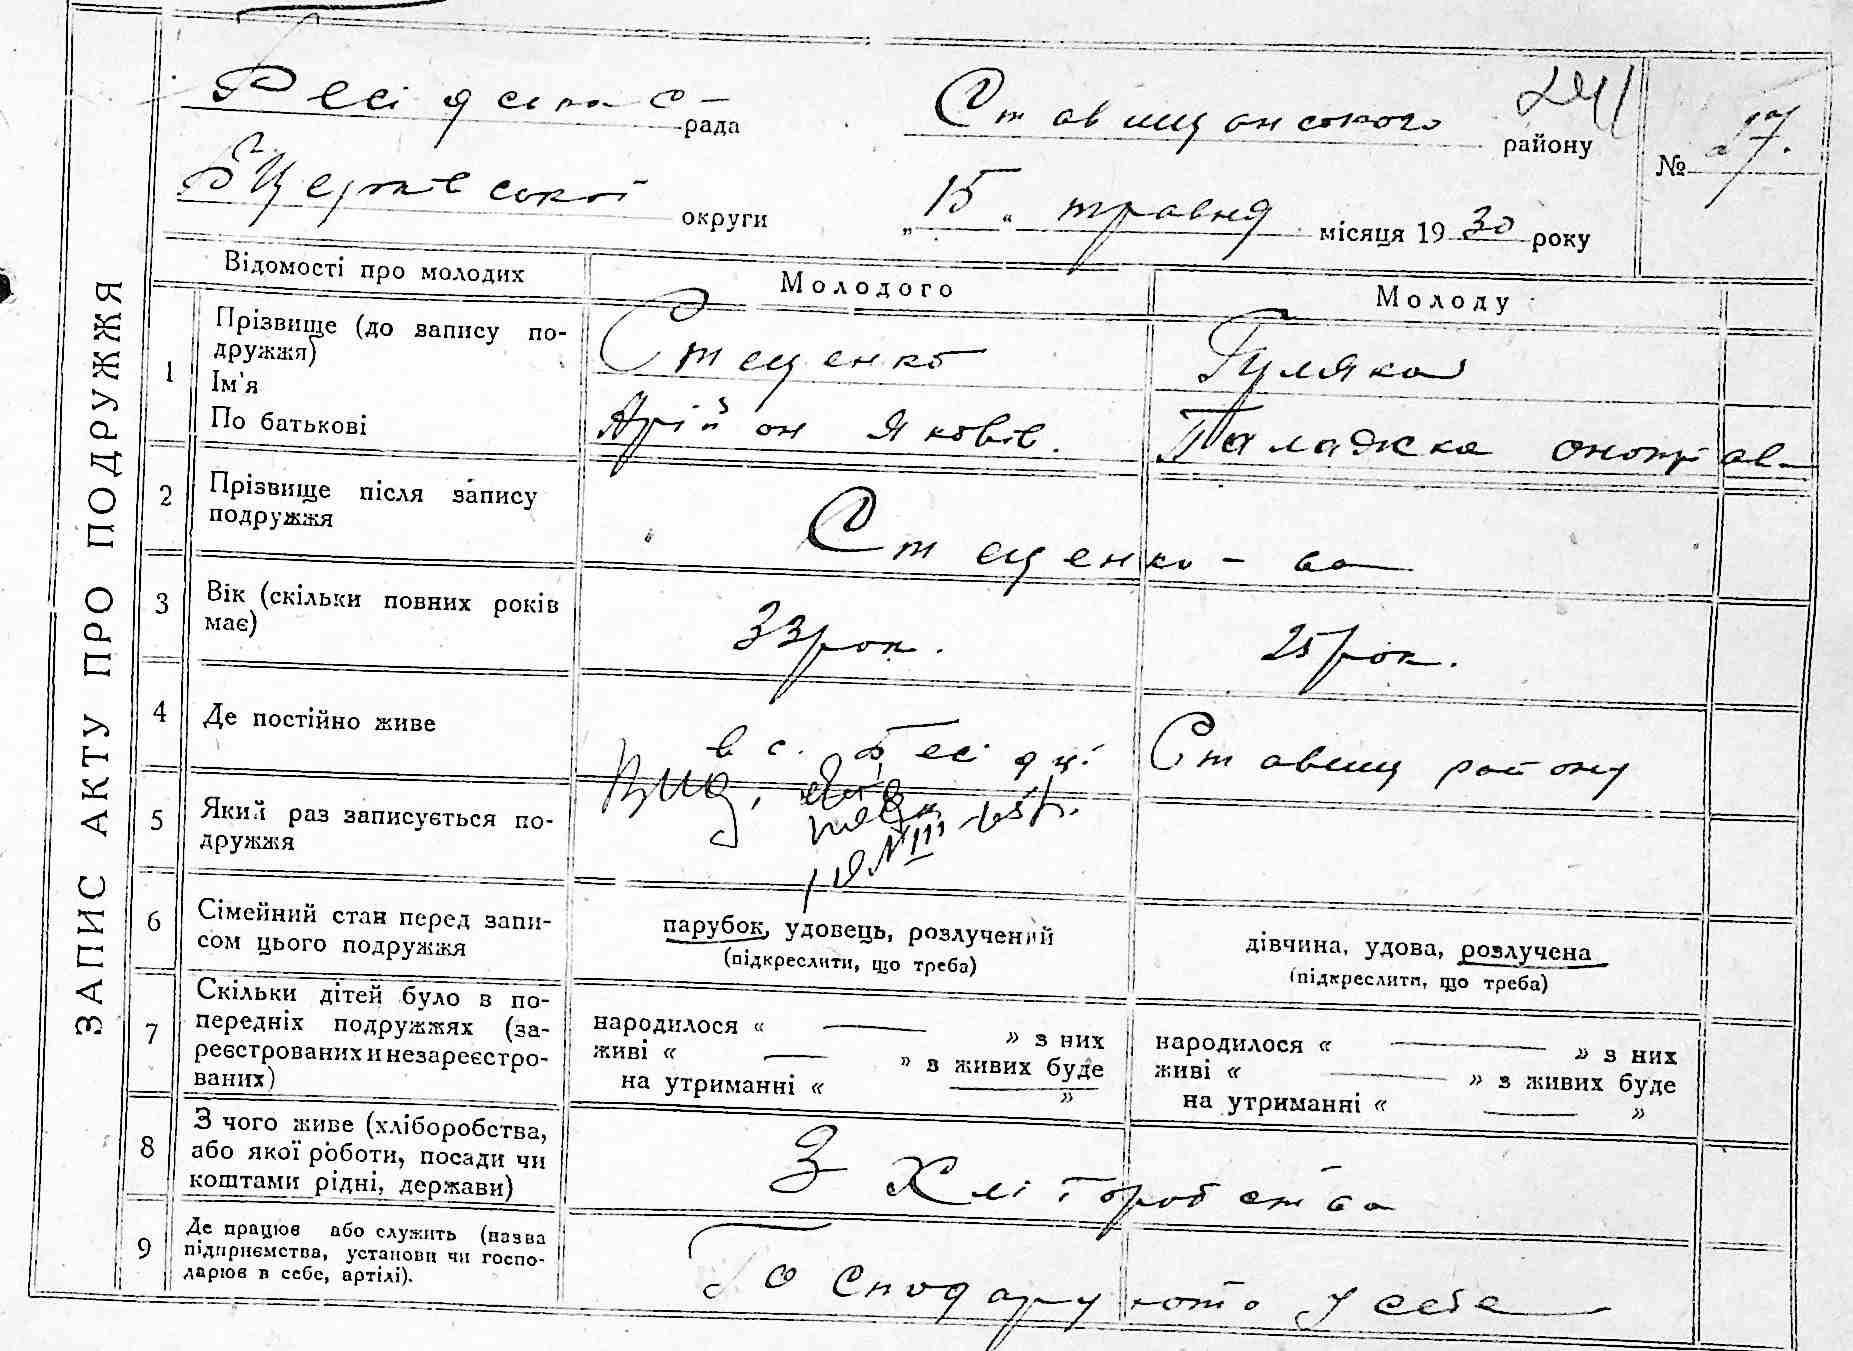 ЗАПИС АКТУ ПРО ПОДРУЖЖЯ
Бесідська рада Ставищанського району 241 № 27.
Б Церківської округи „15“ травня місяця 1930 року
Відомості про молодих Молодого Молоду
1 Прізвище (до запису по-
дружжя) Стеценко Гуляка
Ім'я
По батькові Арійон Яковів. Палажка Оноприав
2 Прізвище після запису
подружжя Стеценко - ва
3 Вік (скільки повних років
має) 33 рок. 25 рок.
4 Де постійно живе в с. Бесідці Ставищ району
5 Який раз записується по-
дружжя
6 Сімейний стан перед запи-
сом цього подружжя
парубок, удовець, розлучений
(підкреслити, що треба)
дівчина, удова, розлучена
(підкреслити, що треба)
7 Скільки дітей було в по-
передніх подружжях (за-
реєстрованих и незареєстро-
ваних)
народилося « — » з них
живі « — » з живих буде
на утриманні « — »
народилося « — » з них
живі « — » з живих буде
на утриманні « — »
8 З чого живе (хліборобства,
або якої роботи, посади чи
коштами рідні, держави)
З Хліборобства
9 Де працює або служить (назва
підприємства, установи чи госпо-
дарює в себе, артілі).
Господарують у себе